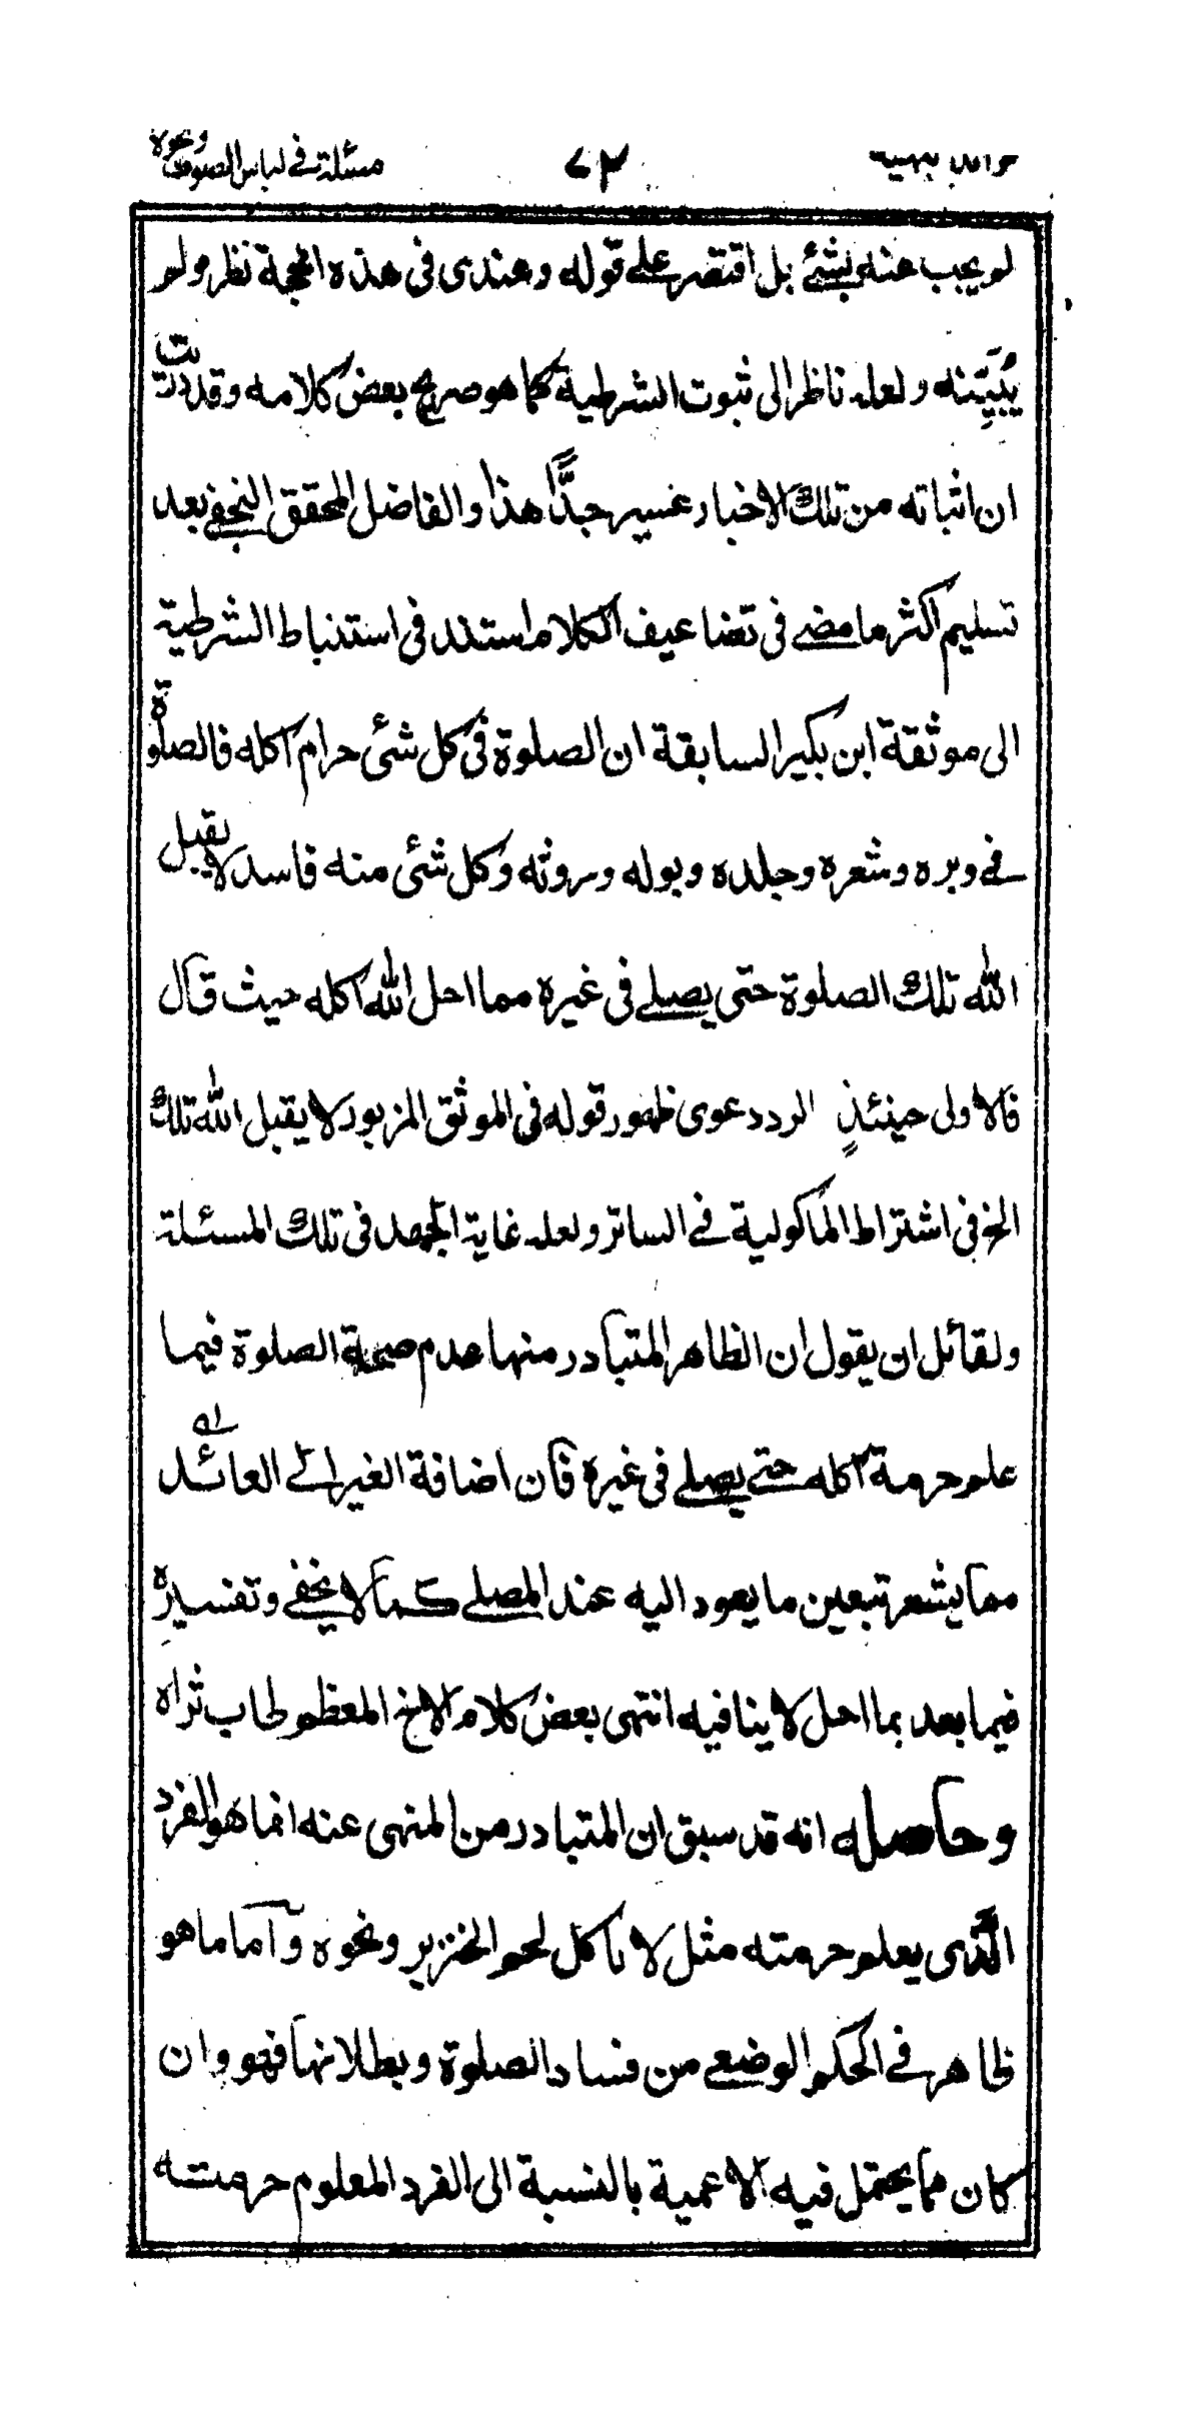 فوائد بهية ٧٢ مسئلة في لباس الصوف ونحوه
لم يجب عنه بشئ بل اقتصر على قوله وعندى فى هذه الحجة نظر ولم
يُبَيِّنه ولعله ناظر الى ثبوت الشرطية كما هو صريح بعض كلامه وقد دريت
ان اثباته من تلك الاخبار عسير جدًّا هذا والفاضل المحقق النجفي بعد
تسليم اكثر ما مضى فى تضاعيف الكلام استند فى استنباط الشرطية
الى موثقة ابن بكير السابقة ان الصلوة فى كل شئ حرام اكله فالصلوة
في وبره وشعره وجلده وبوله وروثه وكل شئ منه فاسد لا يقبل
الله تلك الصلوة حتى يصلي فى غيره مما احل الله اكله حيث قال
فالاولى حينئذٍ الرد دعوى ظهور قوله فى الموثق المزبور لا يقبل الله تلك
الخ فى اشتراط الماكولية في الساتر ولعله غاية الجهد فى تلك المسئلة
ولقائل ان يقول ان الظاهر المتبادر منها عدم صحة الصلوة فيما
علم حرمة اكله حتى يصلي فى غيره فان اضافة الغير الى العائد اليه
مما يشعر بتعين ما يعود اليه عند المصلي كما لا يخفى وتفسيره
فيما بعد بما احل لا ينافيه انتهى بعض كلام الاخ المعظم طاب ثراه
وحاصله انه قد سبق ان المتبادر من المنهى عنه انما هو الفرد
الَّذى يعلم حرمته مثل لا تاكل لحم الخنزير ونحوه وآما ما هو
ظاهر في الحكم الوضعي من فساد الصلوة وبطلانها فهو وان
كان مما يحتمل فيه الاعمية بالنسبة الى الفرد المعلوم حرمته